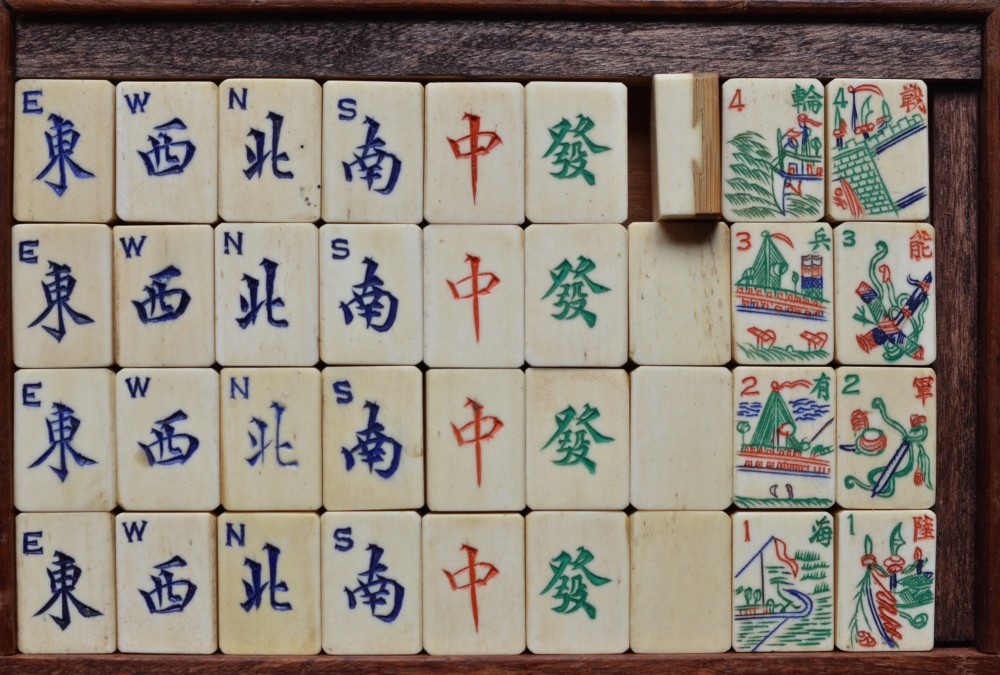 E 東 W 西 N 北 S 南 中 發 4 輪 4 戰
E 東 W 西 N 北 S 南 中 發 3 兵 3 能
E 東 W 西 N 北 S 南 中 發 2 有 2 軍
E 東 W 西 N 北 S 南 中 發 1 海 1 陸